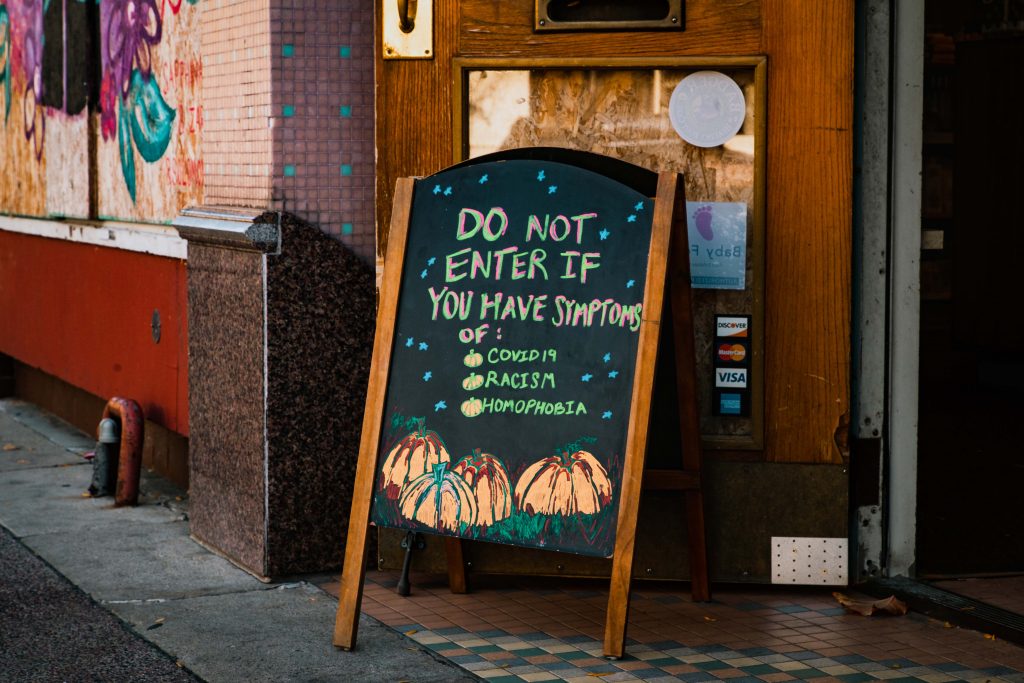 DO NOT
ENTER IF
YOU HAVE SYMPTOMS
OF:
COVID19
RACISM
HOMOPHOBIA
Baby F
DISCOVER
MasterCard
VISA